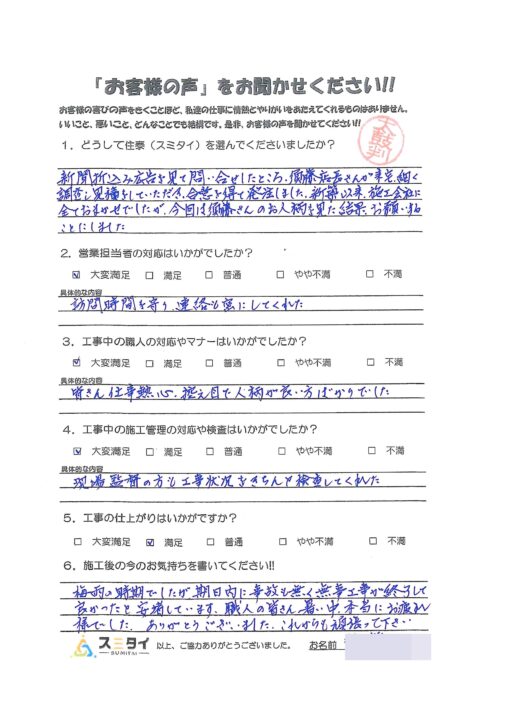 「お客様の声」をお聞かせください!!
お客様の喜びの声をきくことほど、私達の仕事に情熱とやりがいをあたえてくれるものはありません。
いいこと、悪いこと、どんなことでも結構です。是非、お客様の声を聞かせてください!!
太鼓判
1．どうして住泰（スミタイ）を選んでくださいましたか?
新聞折込み広告を見て問い合せしたところ、店長さんが来宅、細く
調査し見積をしていただき、合意を得て発注しました。新築以来、施工会社に
全ておまかせでしたが、今回は さんのお人柄を見た結果、お願いする
ことにしました
2．営業担当者の対応はいかがでしたか?
☑ 大変満足 □ 満足 □ 普通 □ やや不満 □ 不満
具体的な内容
訪問時間を守り、連絡も密にしてくれた
3．工事中の職人の対応やマナーはいかがでしたか?
☑ 大変満足 □ 満足 □ 普通 □ やや不満 □ 不満
具体的な内容
皆さん仕事熱心、控え目で人柄が良い方ばかりでした
4．工事中の施工管理の対応や検査はいかがでしたか?
☑ 大変満足 □ 満足 □ 普通 □ やや不満 □ 不満
具体的な内容
現場監督の方も工事状況をきちんと検査してくれた
5．工事の仕上がりはいかがですか?
□ 大変満足 ☑ 満足 □ 普通 □ やや不満 □ 不満
6．施工後の今のお気持ちを書いてください!!
梅雨の時期でしたが、期日内に事故も無く無事工事が終了して
良かったと安堵しています、職人の皆さん、暑い中、本当にお疲れ
様でした。ありがとうございました。これからも頑張って下さい
スミタイ
SUMITAI
以上、ご協力ありがとうございました。
お名前